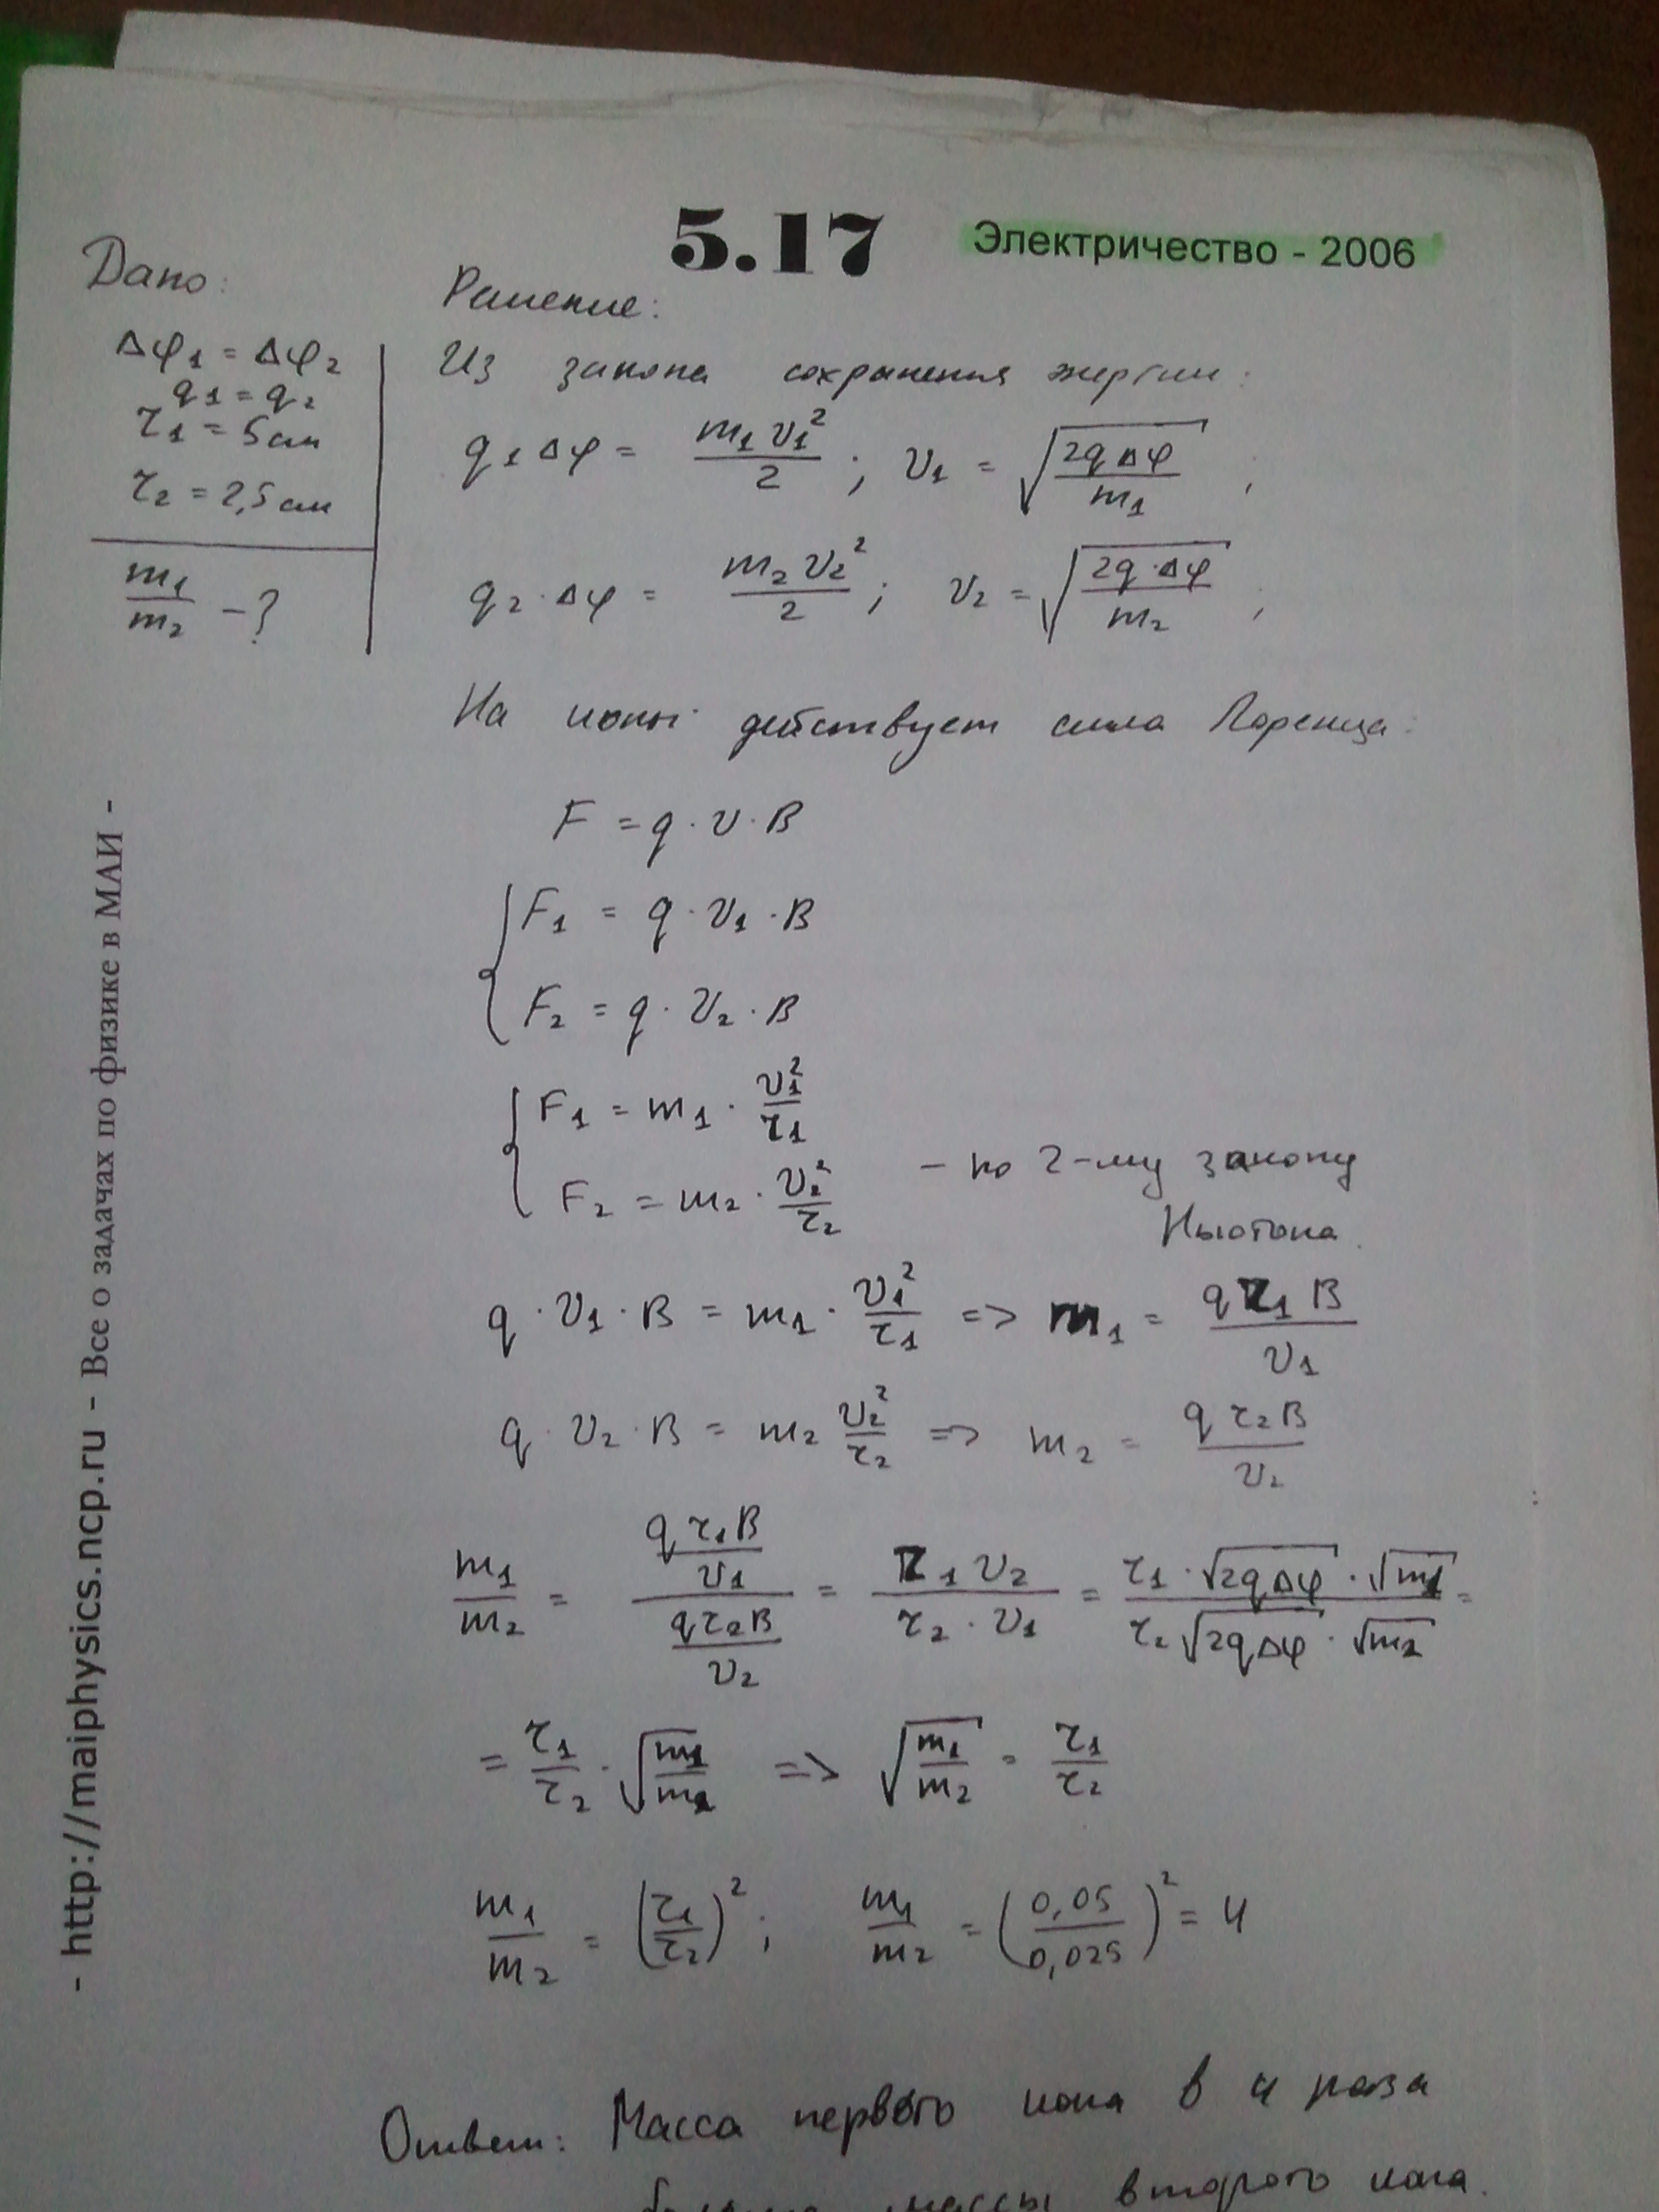 5.17
Электричество - 2006
Дано:
Δφ1 = Δφ2
q1 = q2
r1 = 5 см
r2 = 2,5 см
m1/m2 - ?
Решение:
Из закона сохранения энергии:
q1 Δφ = m1 v1²/2 ; v1 = √(2qΔφ/m1) ;
q2 · Δφ = m2 v2²/2 ; v2 = √(2q·Δφ/m2) ;
На ионы действует сила Лоренца:
F = q · v · B
F1 = q · v1 · B
F2 = q · v2 · B
F1 = m1 · v1²/r1
F2 = m2 · v2²/r2 - по 2-му закону
Ньютона.
q · v1 · B = m1 · v1²/r1 => m1 = q r1 B/v1
q · v2 · B = m2 v2²/r2 => m2 = q r2 B/v2
m1/m2 = (q r1 B/v1)/(q r2 B/v2) = r1 v2/(r2 · v1) = (r1 · √(2qΔφ) · √m1)/(r2 √(2qΔφ) · √m2) =
= r1/r2 · √(m1/m2) => √(m1/m2) = r1/r2
m1/m2 = (r1/r2)² ; m1/m2 = (0,05/0,025)² = 4
Ответ: Масса первого иона в 4 раза
больше массы второго иона.
- http://maiphysics.ncp.ru - Все о задачах по физике в МАИ -